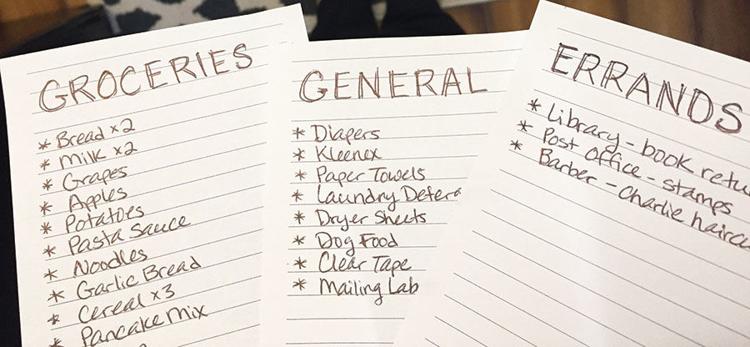 GROCERIES
* Bread x2
* Milk x2
* Grapes
* Apples
* Potatoes
* Pasta Sauce
* Noodles
* Garlic Bread
* Cereal x3
* Pancake Mix
GENERAL
* Diapers
* Kleenex
* Paper Towels
* Laundry Deter
* Dryer Sheets
* Dog Food
* Clear Tape
* Mailing Lab
ERRANDS
* Library - book retu
* Post Office - stamps
* Barber - Charlie hairc